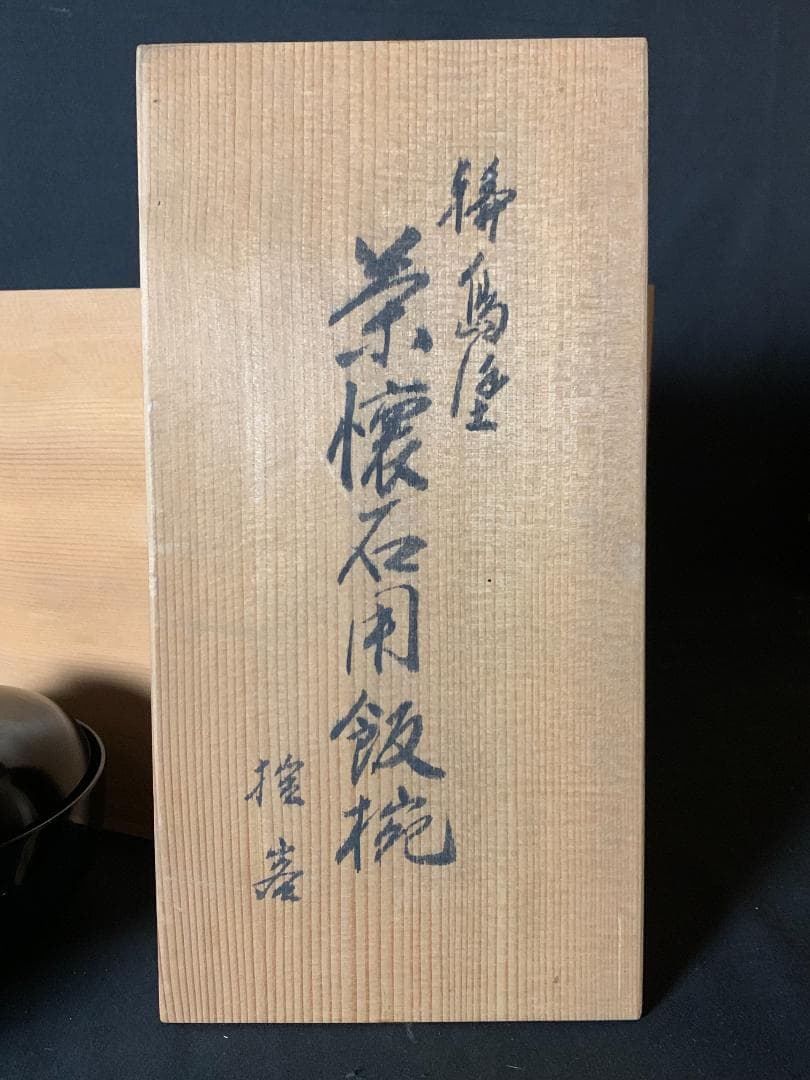 輪島塗
茶懐石用飯椀
拾客